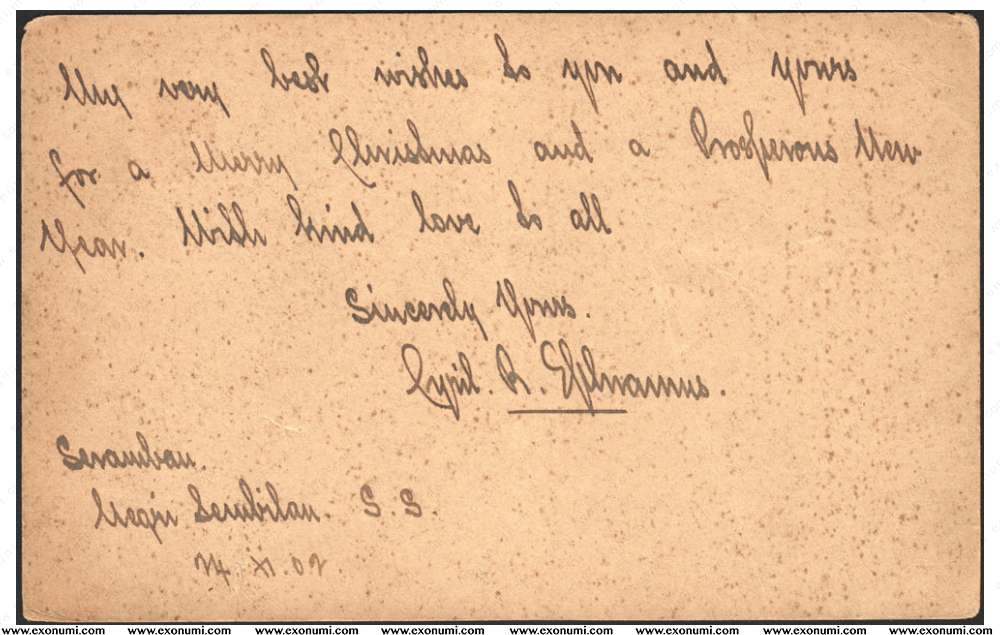 My very best wishes to you and yours
for a Merry Christmas and a Prosperous New
Year. With kind love to all
Sincerely Yours.
Cyril. R.
Seramban.
Negri Sembilan. S. S.
24. XI. 02.
www.exonumi.com www.exonumi.com www.exonumi.com www.exonumi.com www.exonumi.com www.exonumi.com www.exonumi.com www.exonumi.com